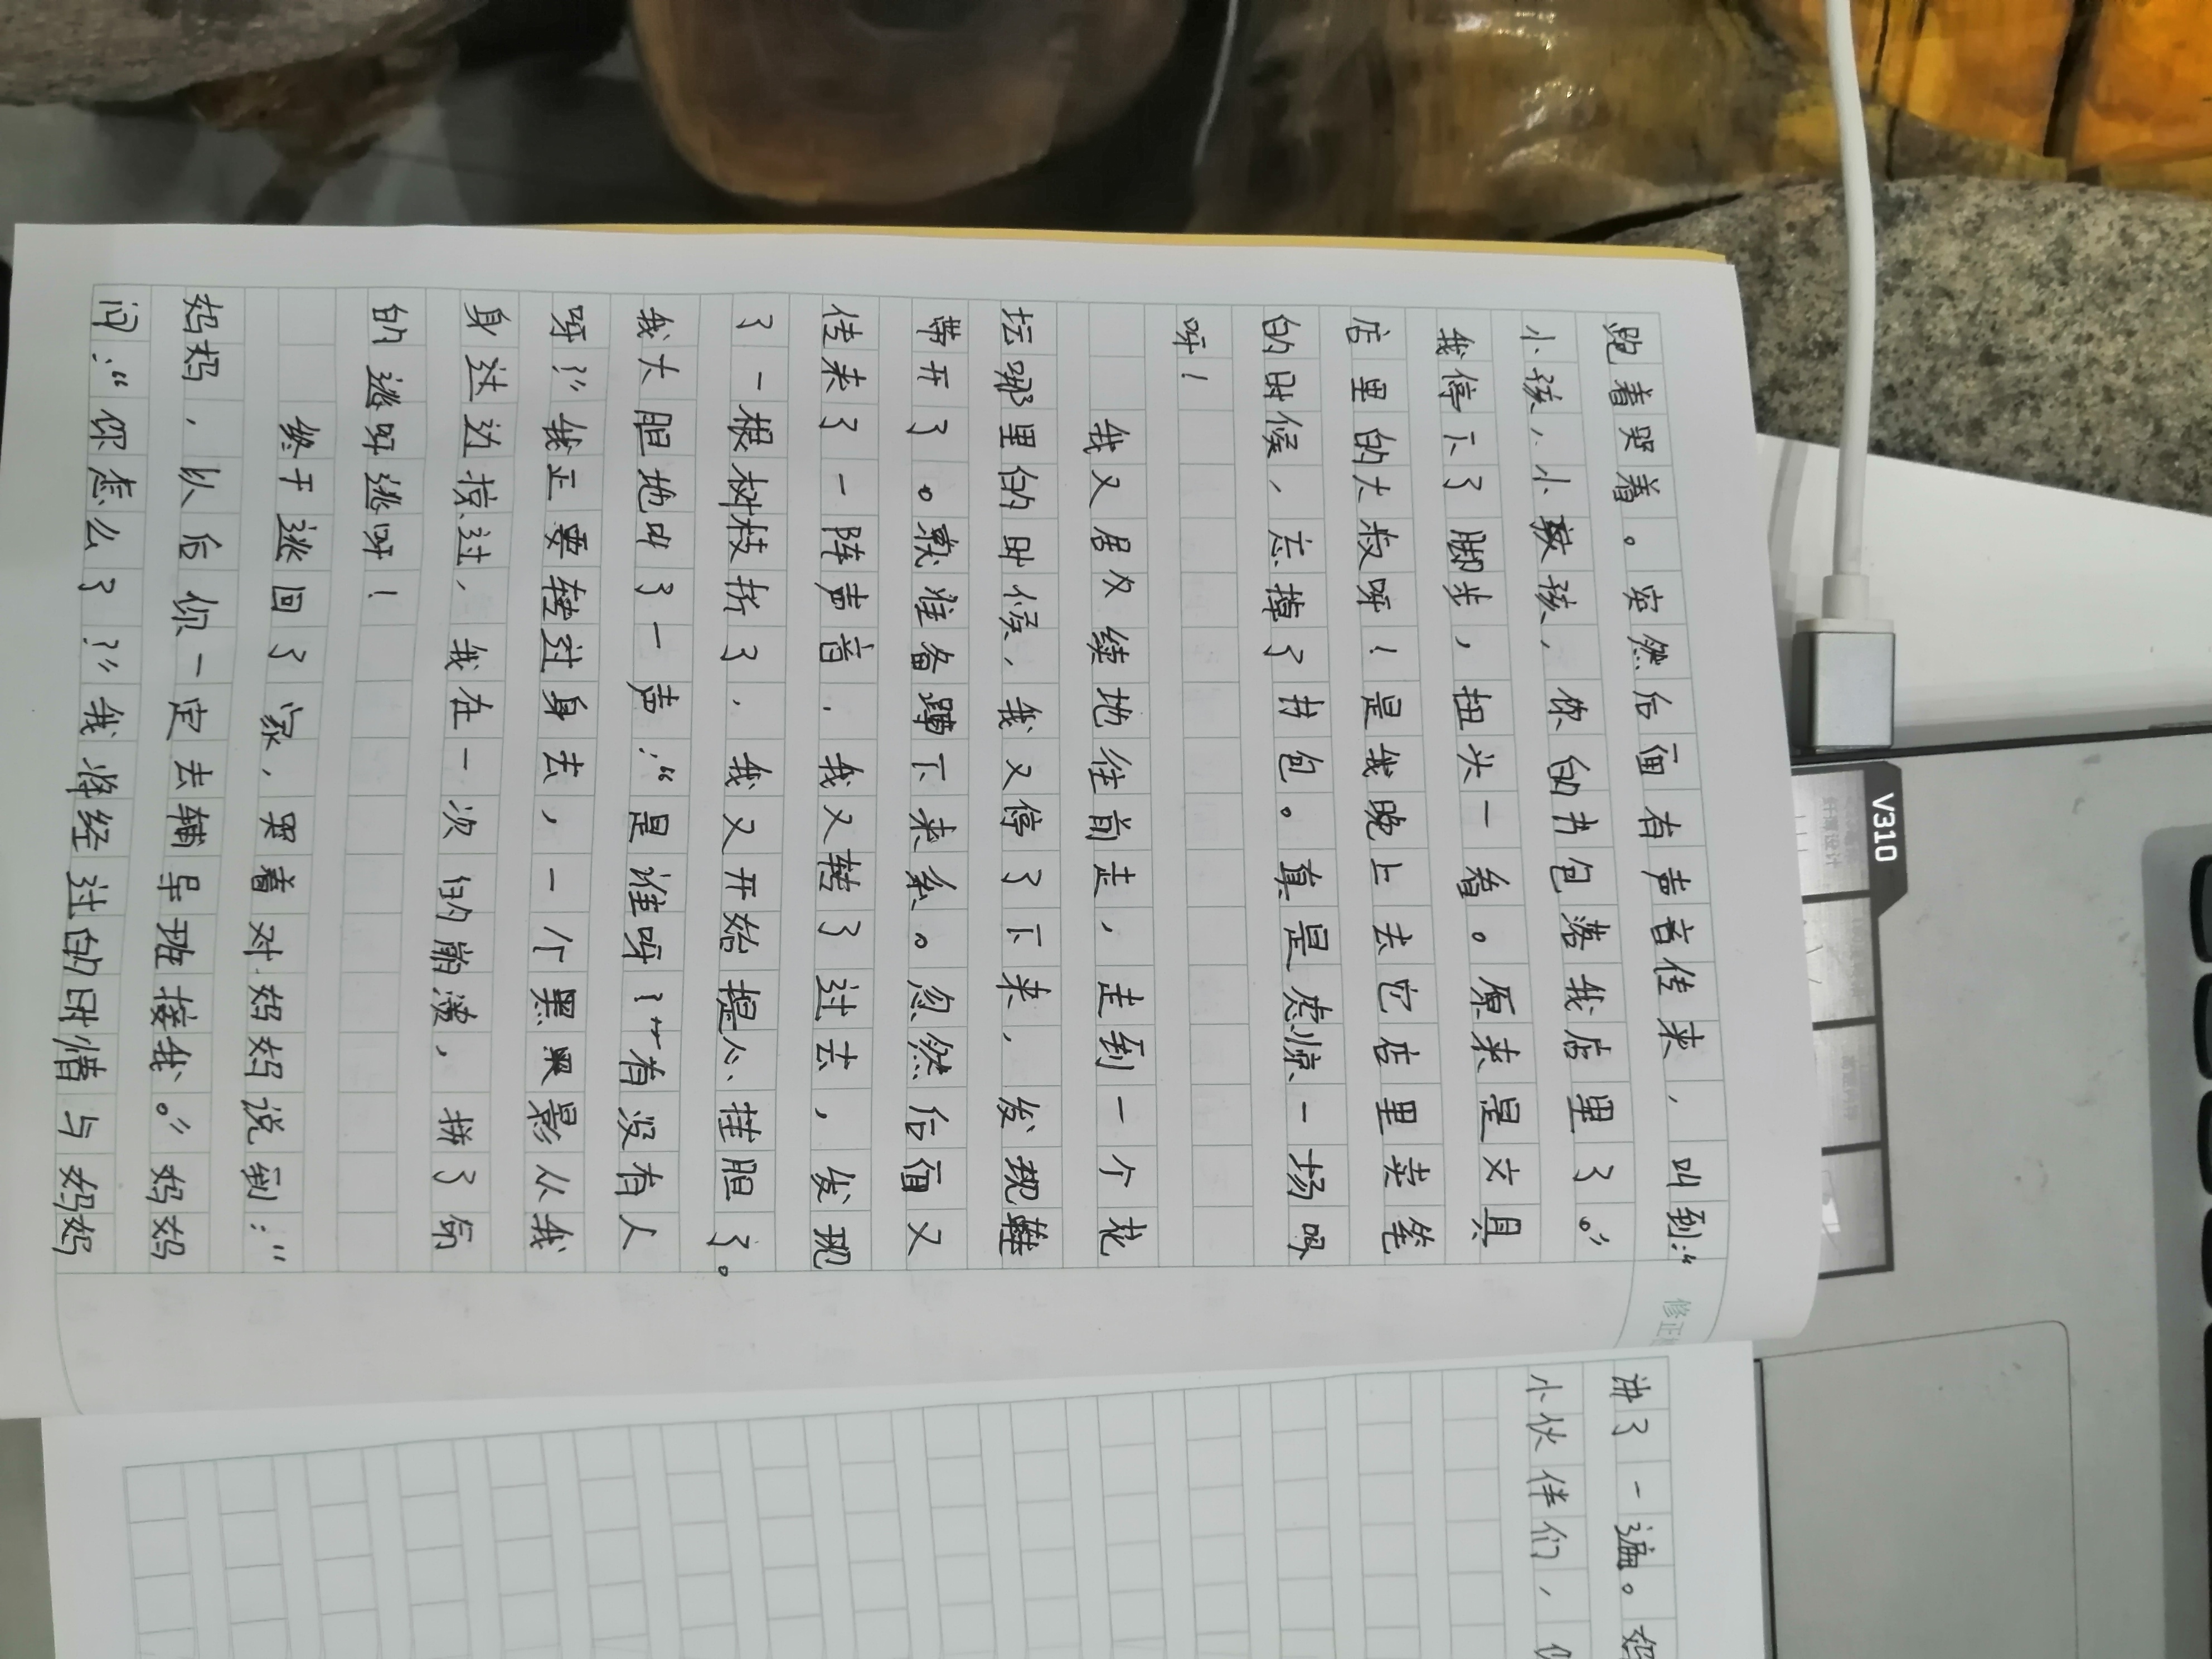 跑着哭着。突然后面有声音传来，叫到：“
小孩，小孩，你的书包落我店里了。”
我停下了脚步，扭头一看。原来是文具
店里的大叔呀！是我晚上去它店里卖笔
的时候，忘掉了书包。真是虚惊一场呀
呀！
我又居久续地往前走，走到一个花
坛哪里的时候，我又停了下来，发现鞋
带开了。我准备蹲下来系。忽然后面又
传来了一阵声音，我又转了过去，发现
了一根树枝折了，我又开始提心掉胆了。
我大胆地叫了一声：“是谁呀？”“有没有人
呀？”我正要转过身去，一个黑黑影从我
身边这掠过，我在一次的崩溃，拼了命
的逃呀逃呀！
终于逃回了家，哭着对妈妈说到：“
妈妈，以后你一定去辅导班接我。”妈妈
问：“你怎么了？”我将经过的时情与妈妈
讲了一遍。妈
小伙伴们，
修正
V310